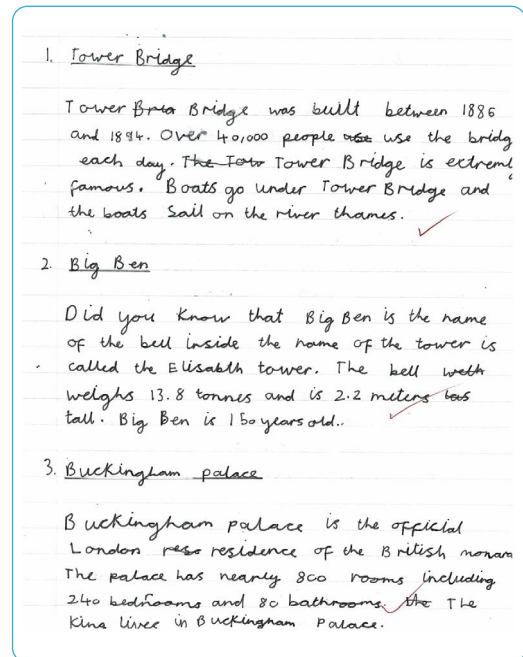 1. Tower Bridge
Tower Bria Bridge was built between 1886
and 1894. Over 40,000 people use the bridg
each day. The Totw Tower Bridge is extreml
famous. Boats go under Tower Bridge and
the boats Sail on the river thames.
2. Big Ben
Did you know that Big Ben is the name
of the bell inside the name of the tower is
called the Elisabth tower. The bell weth
weighs 13.8 tonnes and is 2.2 meters
tall. Big Ben is 150 years old..
3. Buckingham palace
Buckingham palace is the official
London reso residence of the British monam
The palace has nearly 800 rooms including
240 bedrooms and 80 bathrooms. the The
King lives in Buckingham Palace.